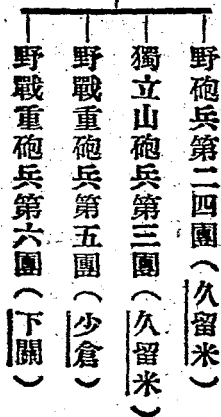 野砲兵第二四團（久留米）
獨立山砲兵第三團（久留米）
野戰重砲兵第五團（少倉）
野戰重砲兵第六團（下關）